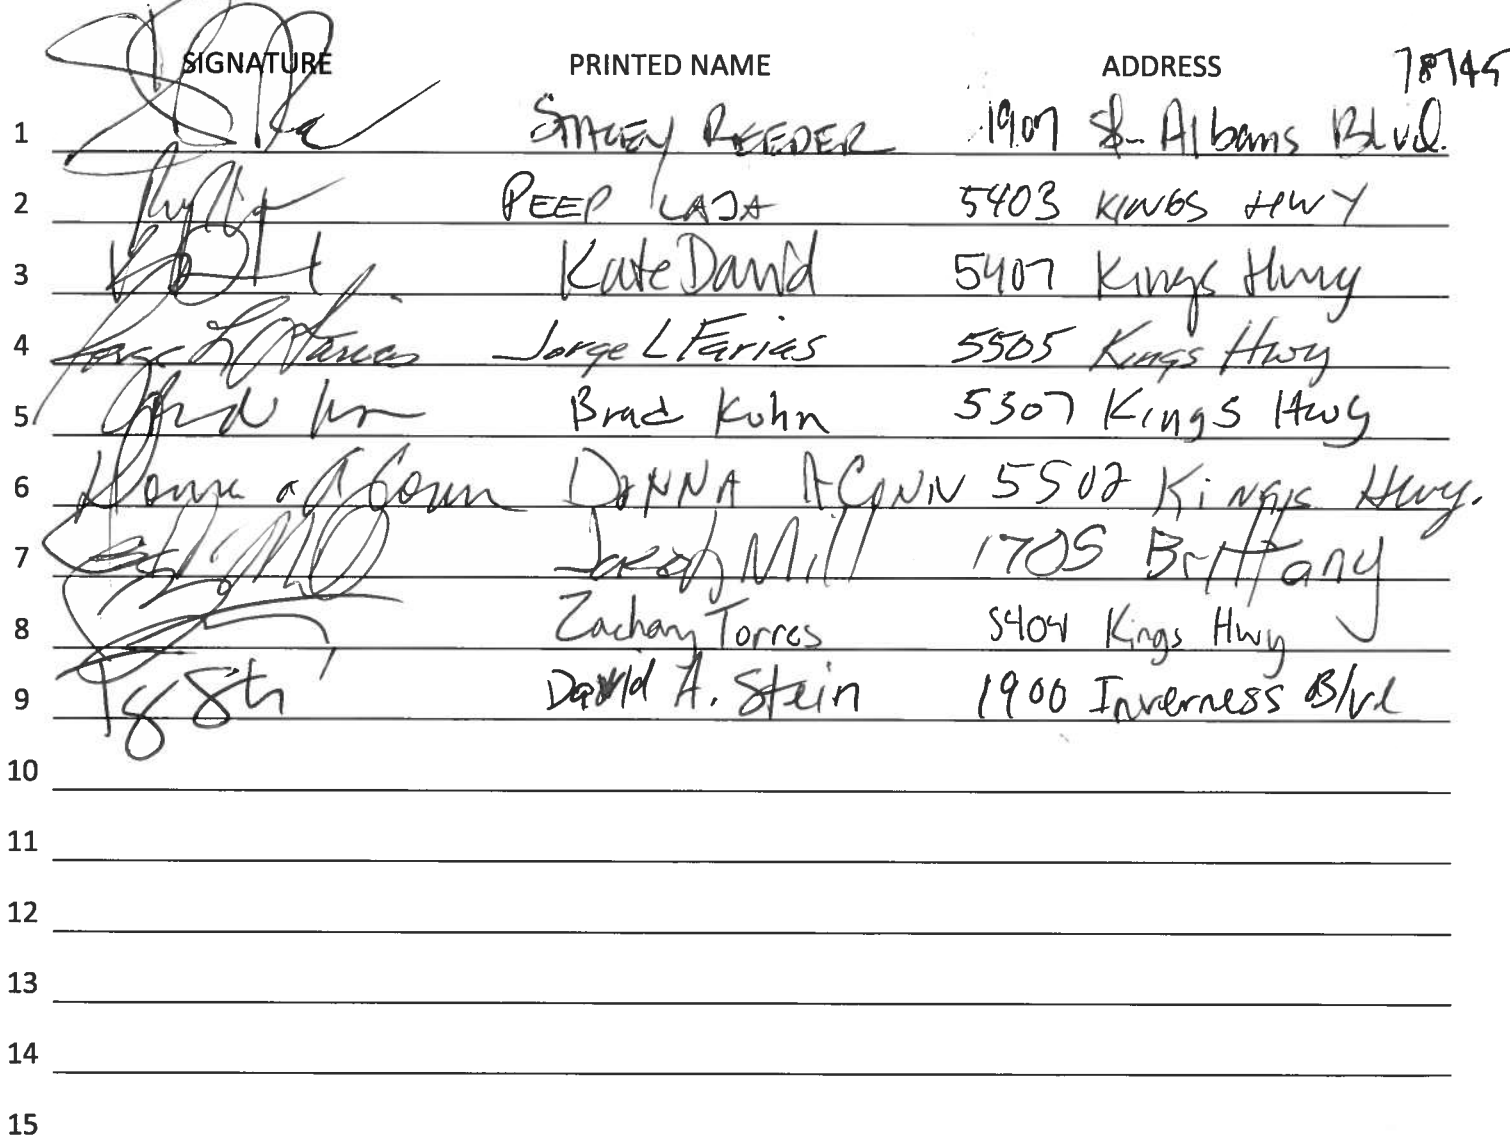 SIGNATURE PRINTED NAME ADDRESS 78745
1 STACEY REEDER 1907 St. Albans Blvd.
2 PEEP LAJA 5403 KINGS HWY
3 Kate David 5407 Kings Hwy
4 Jorge L Farias Jorge L Farias 5505 Kings Hwy
5 Brad Kohn 5507 Kings Hwy
6 Donna A Conn DONNA A CONN 5502 Kings Hwy.
7 Jacob Mill 1705 Brittany
8 Zachary Torres 5404 Kings Hwy
9 David A. Stein 1900 Inverness Blvd
10
11
12
13
14
15